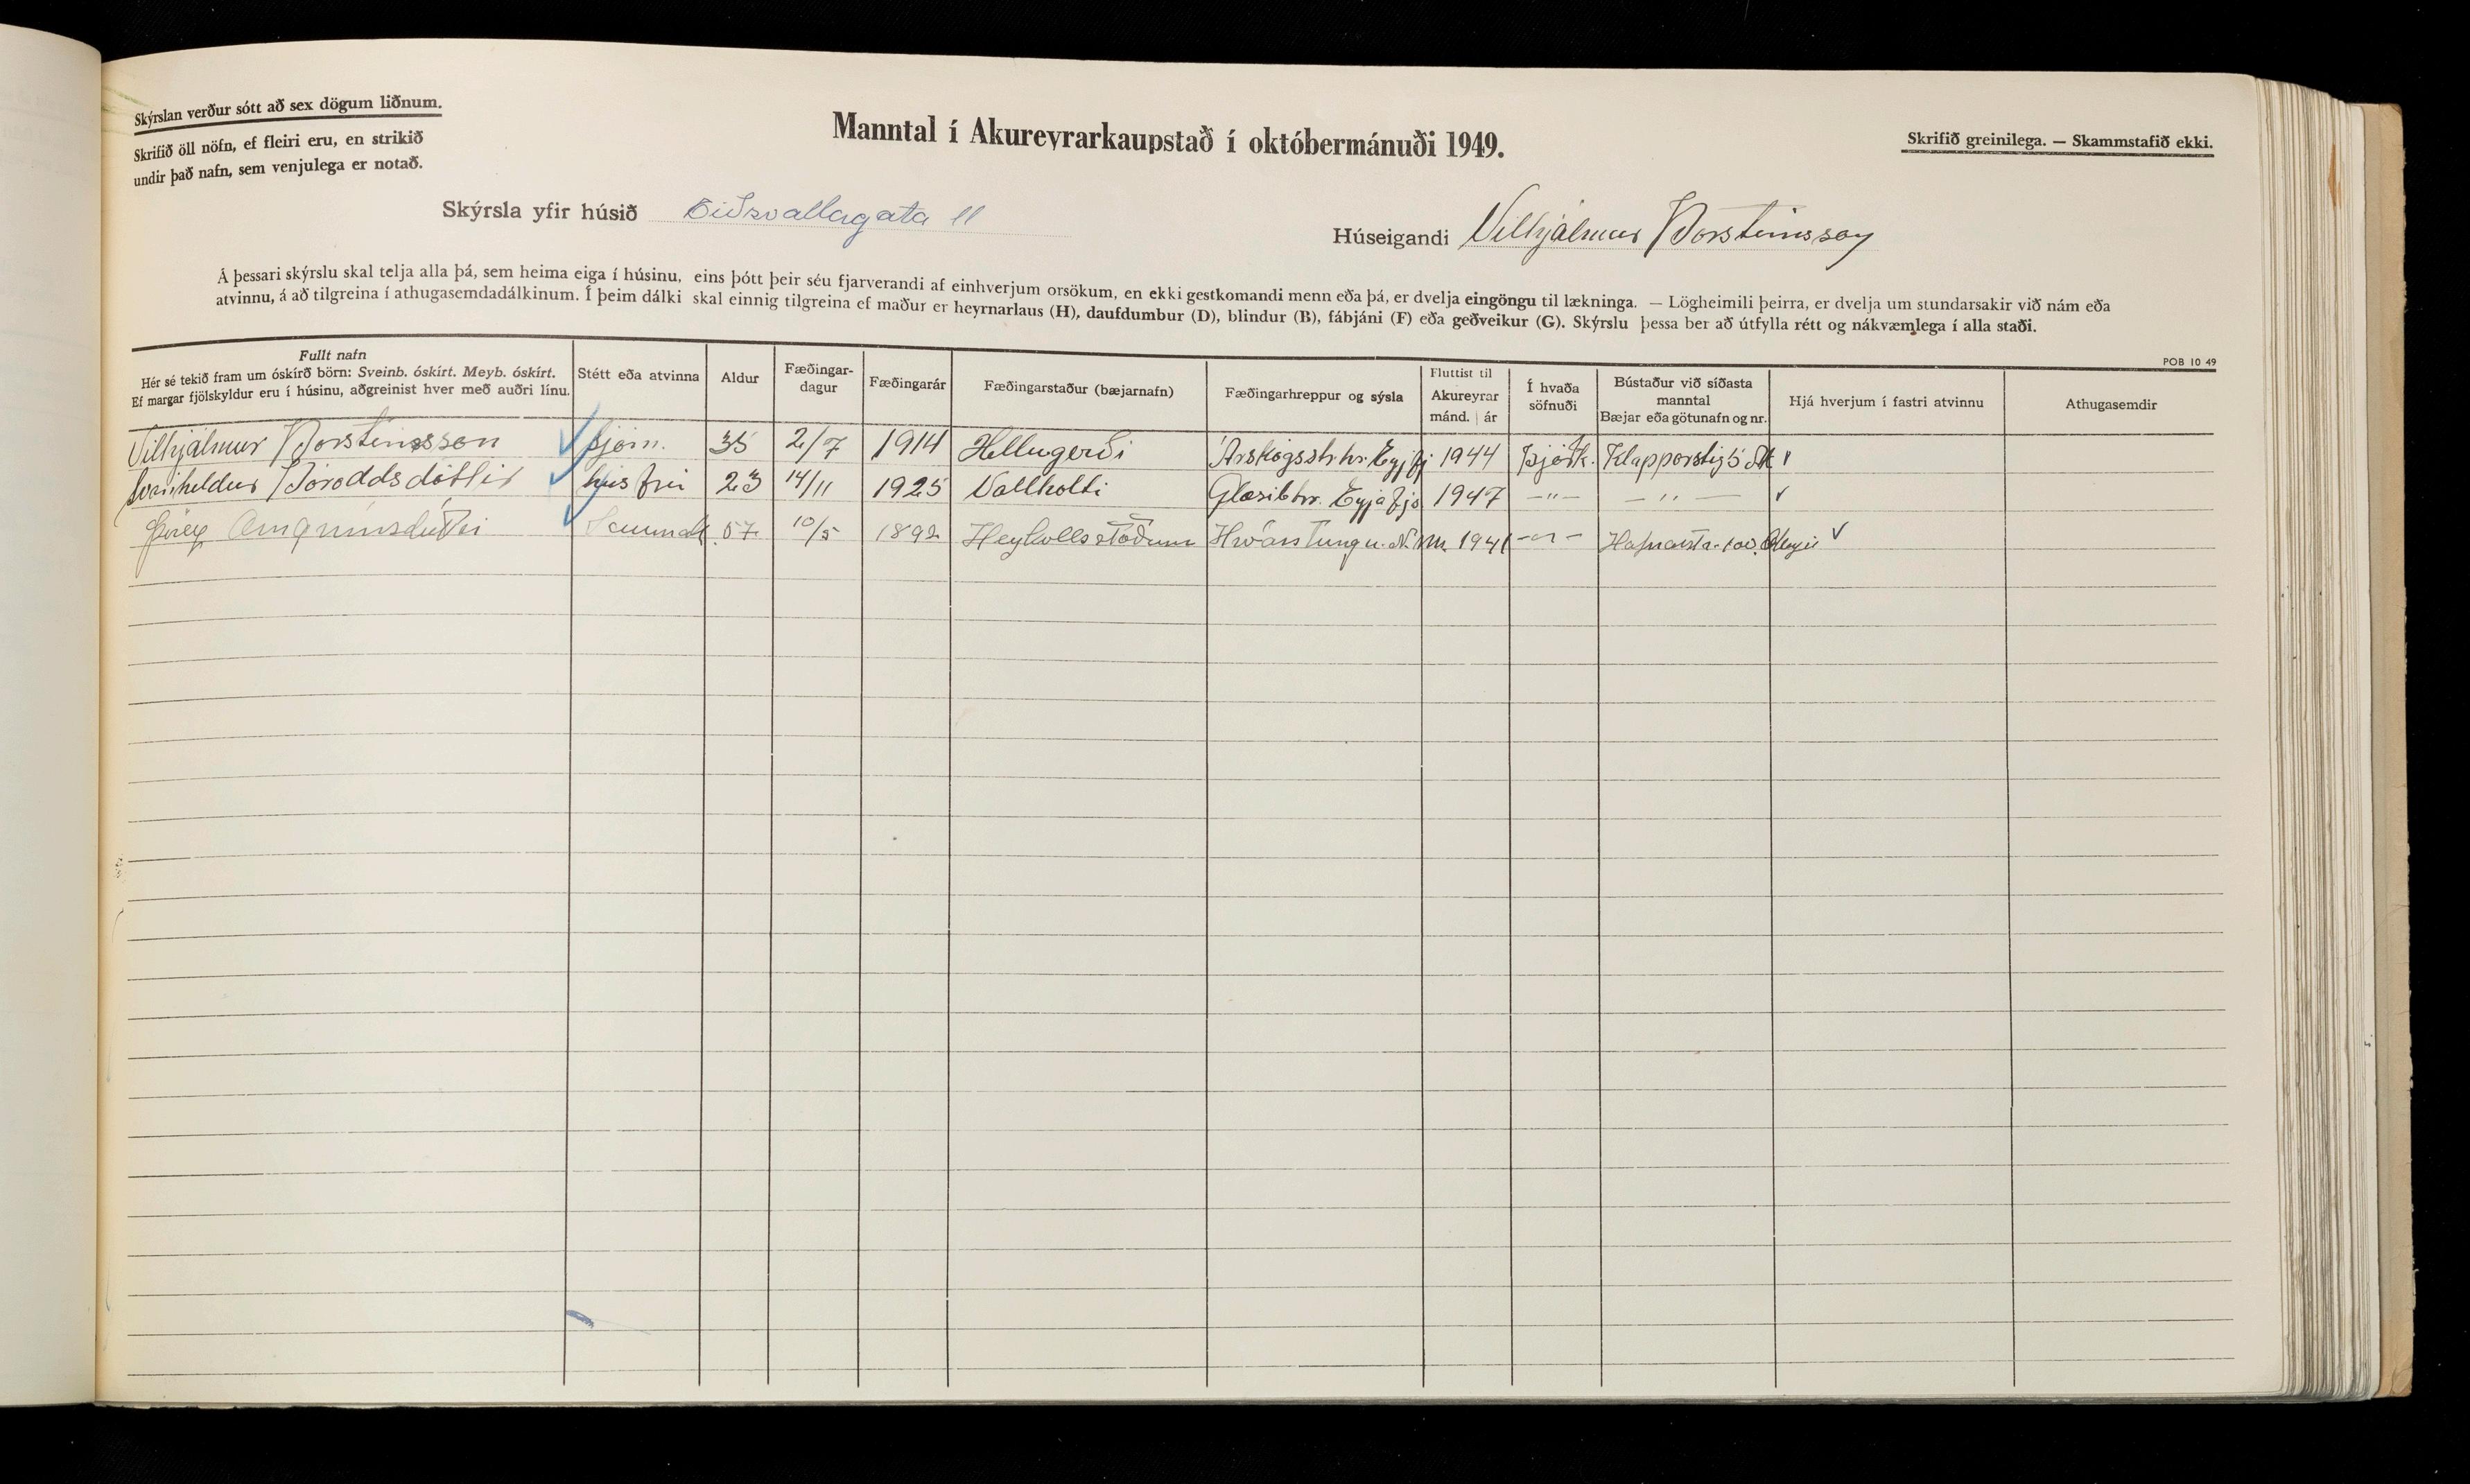 Skýrslan verður sótt að sex dögum liðnum.
Skrifið öll nöfn, ef fleiri eru, en strikið
undir það nafn, sem venjulega er notað.
Manntal í Akureyrarkaupstað í októbermánuði 1949.
Skrifið greinilega. — Skammstafið ekki.
Skýrsla yfir húsið Eiðsvallagata 11
Húseigandi Vilhjálmur Þorsteinsson
Á þessari skýrslu skal telja alla þá, sem heima eiga í húsinu, eins þótt þeir séu fjarverandi af einhverjum orsökum, en ekki gestkomandi menn eða þá, er dvelja eingöngu til lækninga. — Lögheimili þeirra, er dvelja um stundarsakir við nám eða
atvinnu, á að tilgreina í athugasemdadálkinum. Í þeim dálki skal einnig tilgreina ef maður er heyrnarlaus (H), daufdumbur (D), blindur (B), fábjáni (F) eða geðveikur (G). Skýrslu þessa ber að útfylla rétt og nákvæmlega í alla staði.
POB 10 49
Fullt nafn
Hér sé tekið fram um óskírð börn: Sveinb. óskírt. Meyb. óskírt.
Ef margar fjölskyldur eru í húsinu, aðgreinist hver með auðri línu.
Stétt eða atvinna
Aldur
Fæðingar-
dagur
Fæðingarár
Fæðingarstaður (bæjarnafn)
Fæðingarhreppur og sýsla
Fluttist til
Akureyrar
mánd. | ár
Í hvaða
söfnuði
Bústaður við síðasta
manntal
Bæjar eða götunafn og nr.
Hjá hverjum í fastri atvinnu
Athugasemdir
Vilhjálmur Þorsteinsson sjóm. 35 2/7 1914 Hellugerði Árskógsstr.hr. Eyjfj 1944 Þjóðk. Klapparstíg 5 Ak
Svanhildur Þóroddsdóttir húsfrú 23 14/11 1925 Vallholti Glæsibhr. Eyjafjs 1947 —"— —"—
Þórey Arngrímsdóttir 57 10/5 1892 Heykollsstöðum Hróarstungu. N. Mm. 1941 —"— Hafnarstr.